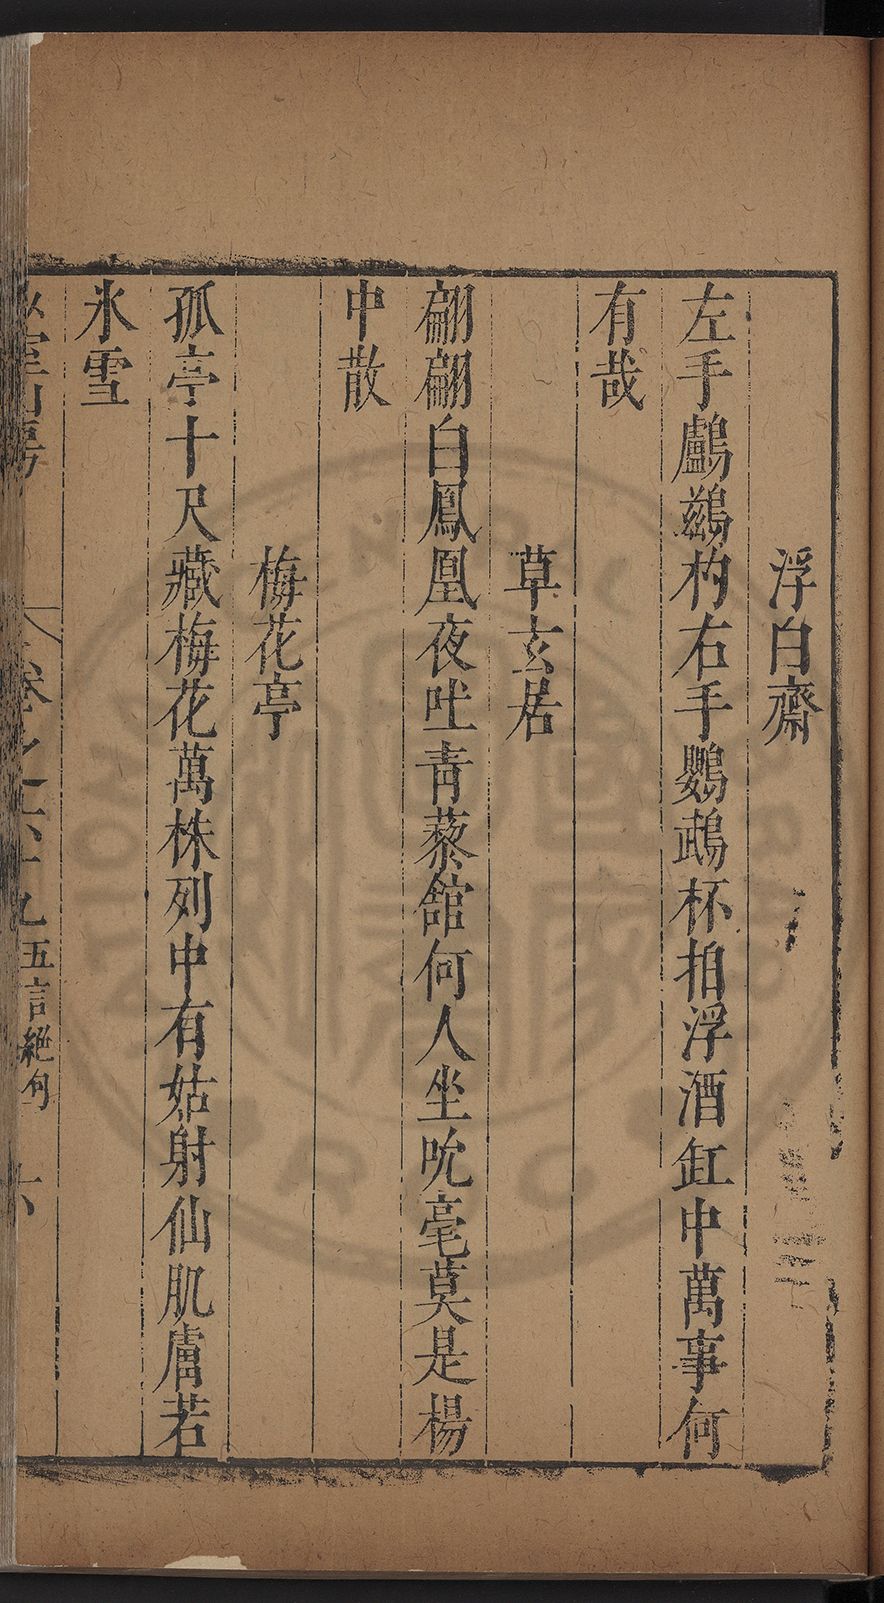 浮白齋
左手鸕鷀杓右手鸚鵡杯拍浮酒缸中萬事何
有哉
草玄居
翩翩白鳳凰夜吐青藜舘何人坐吮毫莫是楊
中散
梅花亭
孤亭十尺藏梅花萬株列中有姑射仙肌膚若
氷雪
卷之六十九 五言絕句 六